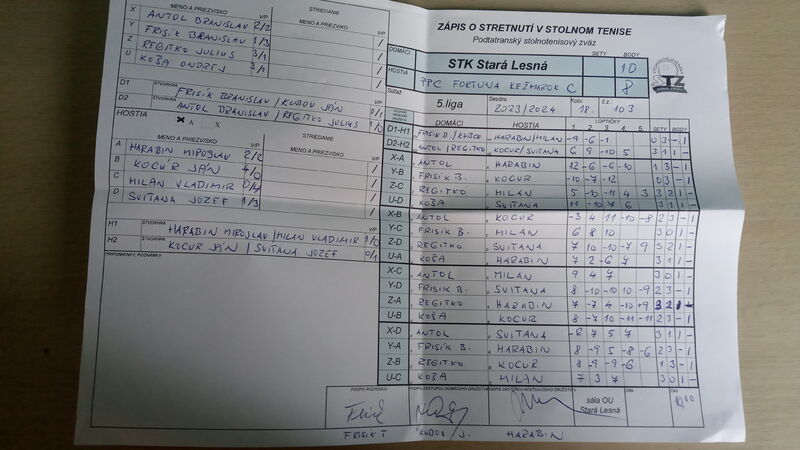 MENO A PRIEZVISKO STRIEDANIE V/P
X ANTOL BRANISLAV 2/2
Y FRISÍK BRANISLAV 1/3
Z REGITKO JÚLIUS 3/1
U KOŠA ONDREJ 3/1
MENO A PRIEZVISKO V/P
D1 ŠTVORHRA FRISÍK BRANISLAV / KUBOV JÁN 0/1
D2 ŠTVORHRA ANTOL BRANISLAV / REGITKO JULIUS 1/0
HOSTIA
MENO A PRIEZVISKO V/P STRIEDANIE
A HARABIN MIROSLAV 2/2
B KOCÚR JÁN 4/0
C MILAN VLADIMIR 0/4
D SVITANA JOZEF 1/3
MENO A PRIEZVISKO V/P
H1 ŠTVORHRA HARABIN MIROSLAV / MILAN VLADIMIR 1/0
H2 ŠTVORHRA KOCUR JÁN / SVITANA JOZEF 0/1
PRIPOMIENKY, POZNÁMKY
ZÁPIS O STRETNUTÍ V STOLNOM TENISE
Podtatranský stolnotenisový zväz
SETY BODY
DOMÁCI STK Stará Lesná 10
HOSTIA PPC FORTUNA KEŽMAROK C 8
Súťaž 5.liga Sezóna 2023/2024 Kolo: 18. č.z.: 103
DOMÁCI HOSTIA LOPTIČKY SETY BODY
1 2 3 4 5
D1-H1 FRISIK B./KUBOV HARABIN/MILAN -9 -6 -1 0 3 - 1
D2-H2 ANTOL/REGITKO KOCUR/SVITANA 6 9 -10 5 3 1 1 -
X-A ANTOL HARABIN 12 -6 -6 -10 1 3 - 1
Y-B FRISÍK B. KOCUR -10 -7 -12 0 3 - 1
Z-C REGITKO MILAN 5 -10 -11 4 3 3 2 1 -
U-D KOŠA SVITANA 11 -10 7 6 3 1 1 -
X-B ANTOL KOCUR -3 4 11 -10 -8 2 3 - 1
Y-C FRISIK B. MILAN 6 8 10 3 0 1 -
Z-D REGITKO SVITANA 7 10 -10 -7 9 3 2 1 -
U-A KOŠA HARABIN 7 2 -6 7 3 1 1 -
X-C ANTOL MILAN 9 4 7 3 0 1 -
Y-D FRISIK B. SVITANA 8 -10 -10 10 -9 2 3 - 1
Z-A REGITKO HARABIN 7 -7 4 -10 +9 3 2 1 -
U-B KOŠA KOCUR 8 -7 10 -11 -11 2 3 - 1
X-D ANTOL SVITANA -6 7 5 7 3 1 1 -
Y-A FRISIK B. HARABIN 8 -9 5 -8 -6 2 3 - 1
Z-B REGITKO KOCUR 8 -9 -9 -6 1 3 - 1
U-C KOŠA MILAN 7 3 7 3 0 1 -
PODPIS ROZHODCU PODPIS ZÁSTUPCU DOMÁCEHO DRUŽSTVA PODPIS ZÁSTUPCU HOSŤUJÚCEHO DRUŽSTVA DŇA ČAS
sála OU
Stará Lesná
10,00
FRISIK T KUBOV J. HARABIN